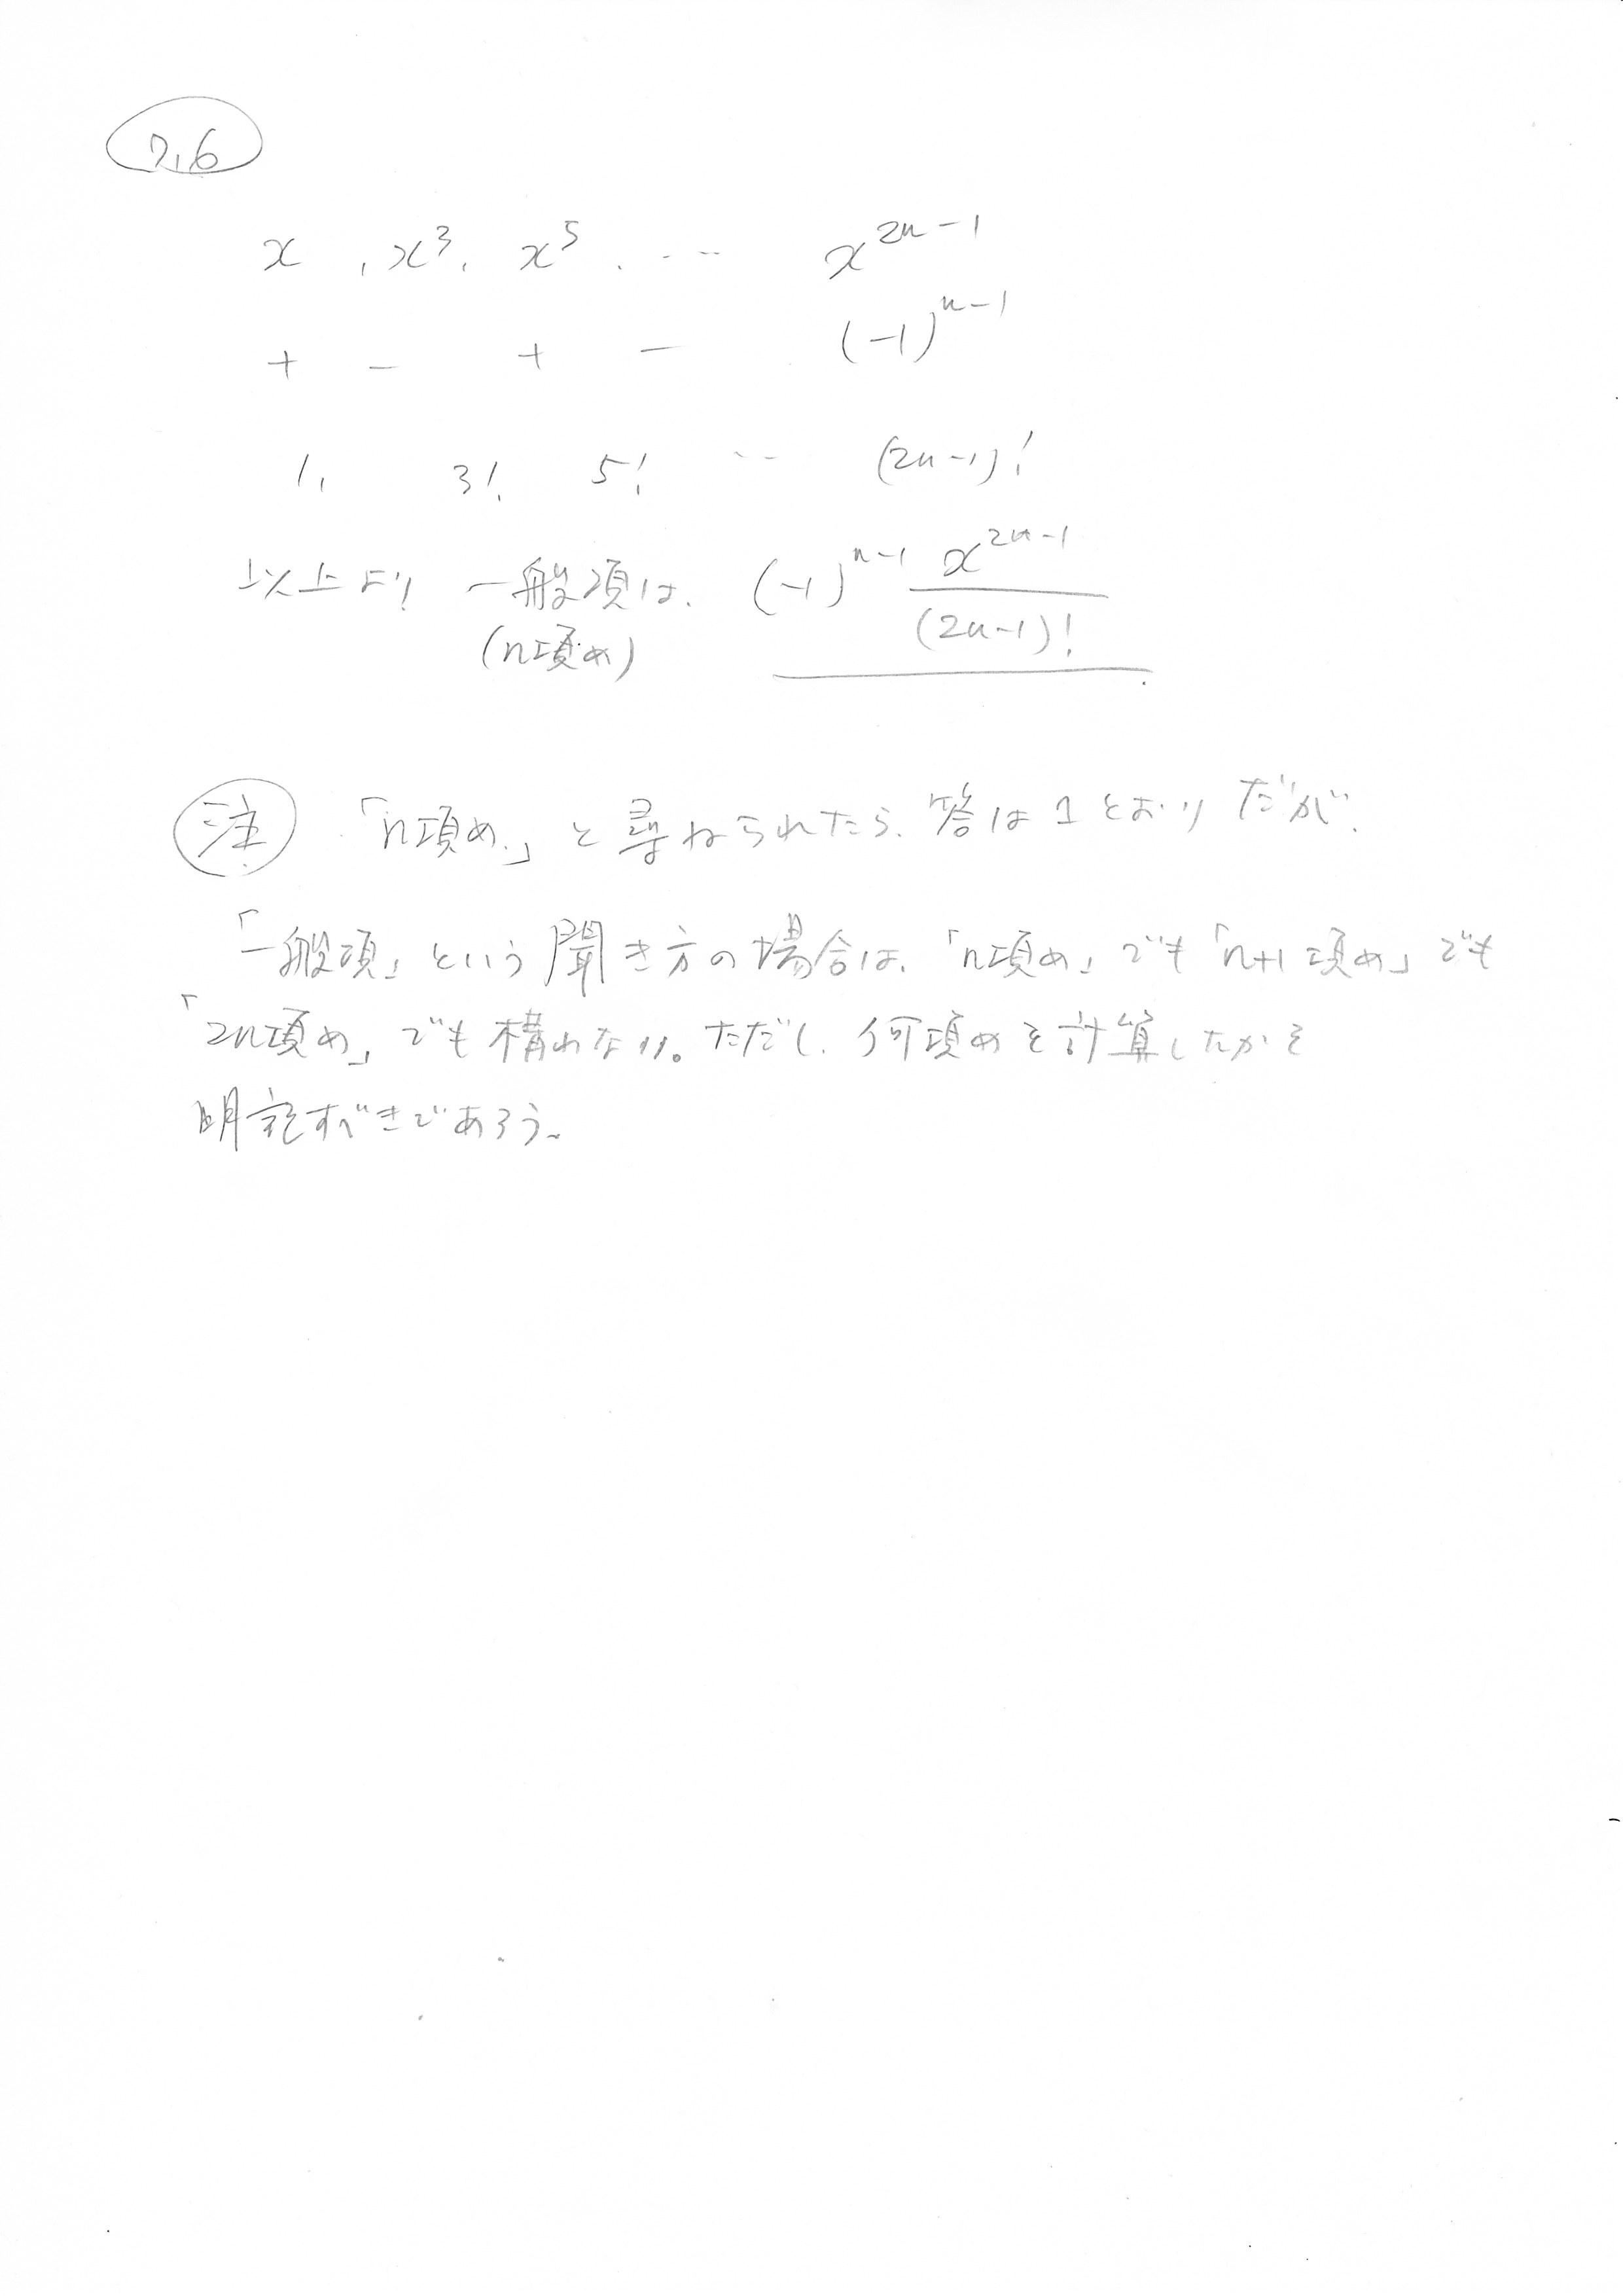 7.6
x , x³, x⁵, ... x^{2n-1}
+ - + - (-1)^{n-1}
1, 3!, 5! ... (2n-1)!
以上より 一般項は、 (-1)^{n-1} x^{2n-1}/(2n-1)!
(n項め)
注 「n項め」と尋ねられたら、答は1とおりだが、
「一般項」という聞き方の場合は、「n項め」でも「n+1項め」でも
「2n項め」でも構わない。ただし、何項めを計算したかを
明記すべきであろう。